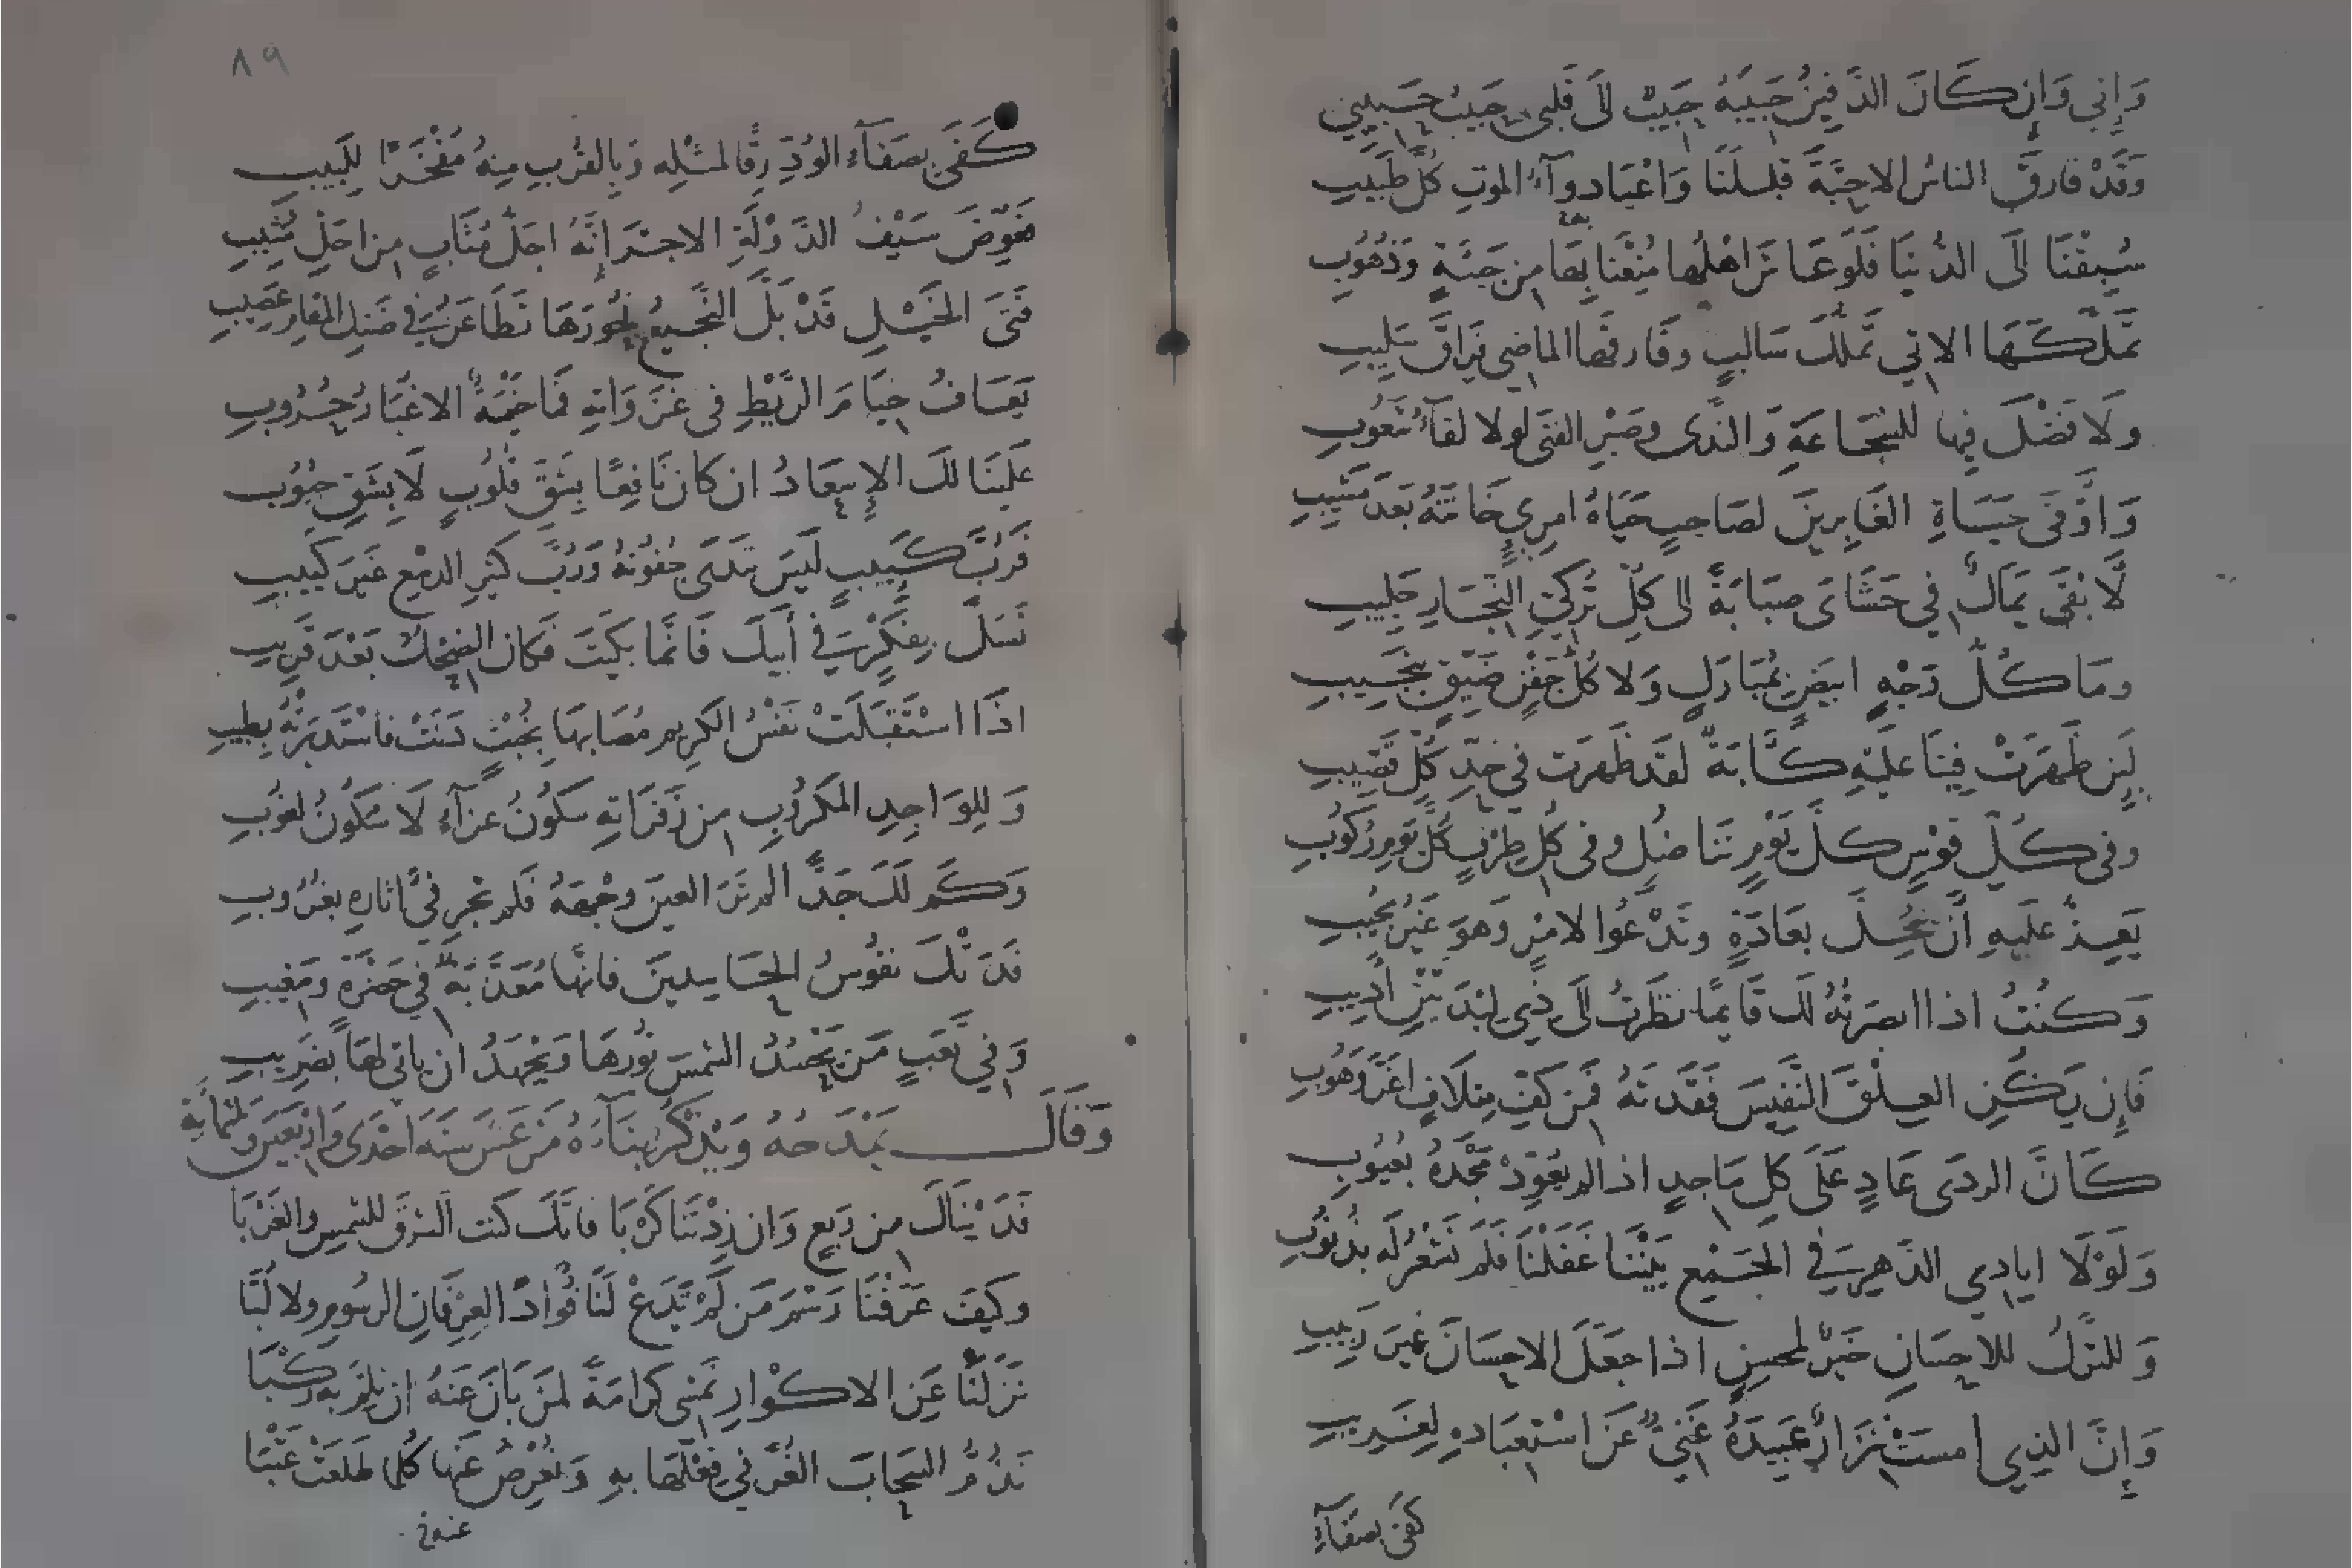 وَإِنِي وَإِن كَانَ الدَفِينُ حَبِيبَهُ حَبِيبٌ الَى قَلبِي حَبِيبُ حَبِيبِي
وَقَدْ فارقَ الناسُ الاحِبَّةَ قبلَنَا وَاعْيَا دوآءُ الموتِ كُلَّ طَبِيبِ
سُبِقْنَا الَى الدُنيَا فَلَو عَاشَ اهْلُهَا مُنِعْنَا بِهَا مِن جَيْئَةٍ وَذُهُوبِ
تَمَلَّكَهَا الاتي تَمَلُّكَ سَالبٍ وفَارقَها الماضِي فِرَاقَ سَلِيبِ
ولَا فَضْلَ فِيها للشجَاعَةِ وَالنَّدَى وصَبْرِ الفتَى لولا لقآءُ شَعُوبِ
وَاوْفَى حَيَاةِ الغَابِرِينَ لصَاحِبٍ حَيَاةُ امرِئٍ خَانَتْهُ بَعدَ مَشِيبِ
لَابْقَى يَمَاكٌ فِي حَشَايَ صبَابَةً الى كُلِّ تُركيِّ النِّجَارِ جَلِيبِ
ومَا كُلُّ وَجْهٍ ابيَضٍ بمُبَارَكٍ وَلا كُلُّ جَفْنٍ ضَيّقٍ بنَجِيبِ
لَئِن ظَهَرَتْ فِينَا عليْهِ كَآبَةٌ لقَد ظَهرَت في حَدِّ كُلِّ قَضِيبِ
وفى كُلِّ قَوْسٍ كلَّ يَوْمٍ تَنَاضُلٍ وفى كُلِّ طِرْفٍ كُلَّ يَومِ رُكُوبِ
يَعِزُّ عَلَيهِ أنْ يُخِلَّ بعَادَةٍ وتَدْعُوا لامْرٍ وَهوَ غَيرُ مُجِيبِ
وَكُنتُ اذا ابصَرتُهُ لَكَ قَائِمًا نظَرتُ الَى ذِي لِبْدَتَيْنِ أدِيبِ
فَإن يَكُنِ العِلْقَ النَّفِيسَ فَقَدتَهُ فَمن كَفِّ مِتلَافٍ اغَرَّ وَهُوبِ
كَأنَّ الردَى عَادٍ عَلَى كلِ مَاجِدٍ اذا لم يعَوِّذْ مَجْدَهُ بعُيُوبِ
وَلَوْلَا ايَادِي الدَهرِ في الجَمْعِ بَيْنَنَا غَفَلْنَا فَلَم نَشعُرْ لَه بذُنُوبِ
وَللتَّركُ للاحسَانِ خَيرٌ لمحسِنٍ اذا جعَلَ الاحِسَانَ غيرَ رَبِيبِ
وَإنَّ الذِي امسَتْ نِزَارٌ عَبِيدَهُ غَنِيٌّ عَن اسْتِعبَادِهِ لِغَرِيبِ
كفَى بصَفَآءِ
٨٩
كَفَى بصَفَآءِ الوُدِّ رِقًّا لمثْلِهِ وَبِالقُربِ مِنهُ مَفْخَرًا للَبِيبِ
فعُوِّضَ سَيْفُ الدَّوْلَةِ الاجْرَ إنَّهُ اجَلُّ مُثَابٍ مِن اجَلِّ مُثِيبِ
فَتَى الخَيْلِ قَدْ بَلَّ النَّجِيعُ نُحُورَهَا تَطَاعَنُ في ضَنكِ المقَامِ عَصِيبِ
يَعَافُ خِيَامَ الرَّيْطِ فى غَزَوَاتِهِ فَمَا خَيْمُهُ الا غُبَارُ حُرُوبِ
عَلَينَا لكَ الإِسعَادُ ان كانَ نَافِعًا بِشَقِّ قُلُوبٍ لَا بِشَقِّ جُيُوبِ
فَرُبَّ كَئِيبٍ لَيسَ تندَى جُفُونُهُ وَرُبَّ كثيرِ الدمْعِ غَيرَ كَئِيبِ
تَسَلَّ بِفِكْرٍ في أبَيكَ فَانَّمَا بكَيتَ فكان الضِّحْكُ بَعْدَ قَرِيبِ
اذَا اسْتَقْبَلَتْ نَفْسُ الكَرِيمِ مُصَابهَا بِخُبْثٍ ثنَتْ فاسْتَدبَرَتْهُ بِطِيبِ
وَللِوَاجِدِ المكرُوبِ مِن زَفَرَاتِهِ سكُونُ عزَآءٍ لَا سُكُونُ لغُوبِ
وَكَم لَكَ جَدًّا لم تَرَ العينُ وجْهَهُ فَلم تَجْرِ في اثارِهِ بغُرُوبِ
فَدَتْكَ نفُوسُ الحَاسِدينَ فانها مُعَذَّبَةٌ في حَضْرَةٍ ومَغِيبِ
وَفِي تَعَبٍ مَن يَحْسُدُ الشمسَ نُورهَا وَيَجْهَدُ ان ياتي لهَا بضَرِيبِ
وَقَالَ يَمْدَحُهُ وَيَذْكُرُ بِنَآءَهُ مَرْعَشَ سَنَه احْدَى وَارْبَعِينَ وَثلثمائَةِ
فَدَيْنَاكَ مِن رَبعٍ وَان زِدْتنَا كَرْبَا فانَّكَ كنت الشرْقَ للشمسِ والغَرْبَا
وكَيفَ عَرَفْنَا رَسْمَ مَن لَمْ تَدَعْ لَنَا فُؤادًا لعِرْفَانِ الرسُومِ ولا لُبَّا
نَزَلْنَا عَنِ الاكْوارِ نَمْشِي كَرامَةً لمَن بَانَ عَنهُ ان نُلِمَّ بِه رَكْبَا
نَذُمُّ السحَابَ الغُرَّ في فِعْلهَا بهِ وَنُعْرِضُ عَنها كُلما طَلعَتْ عَتْبَا